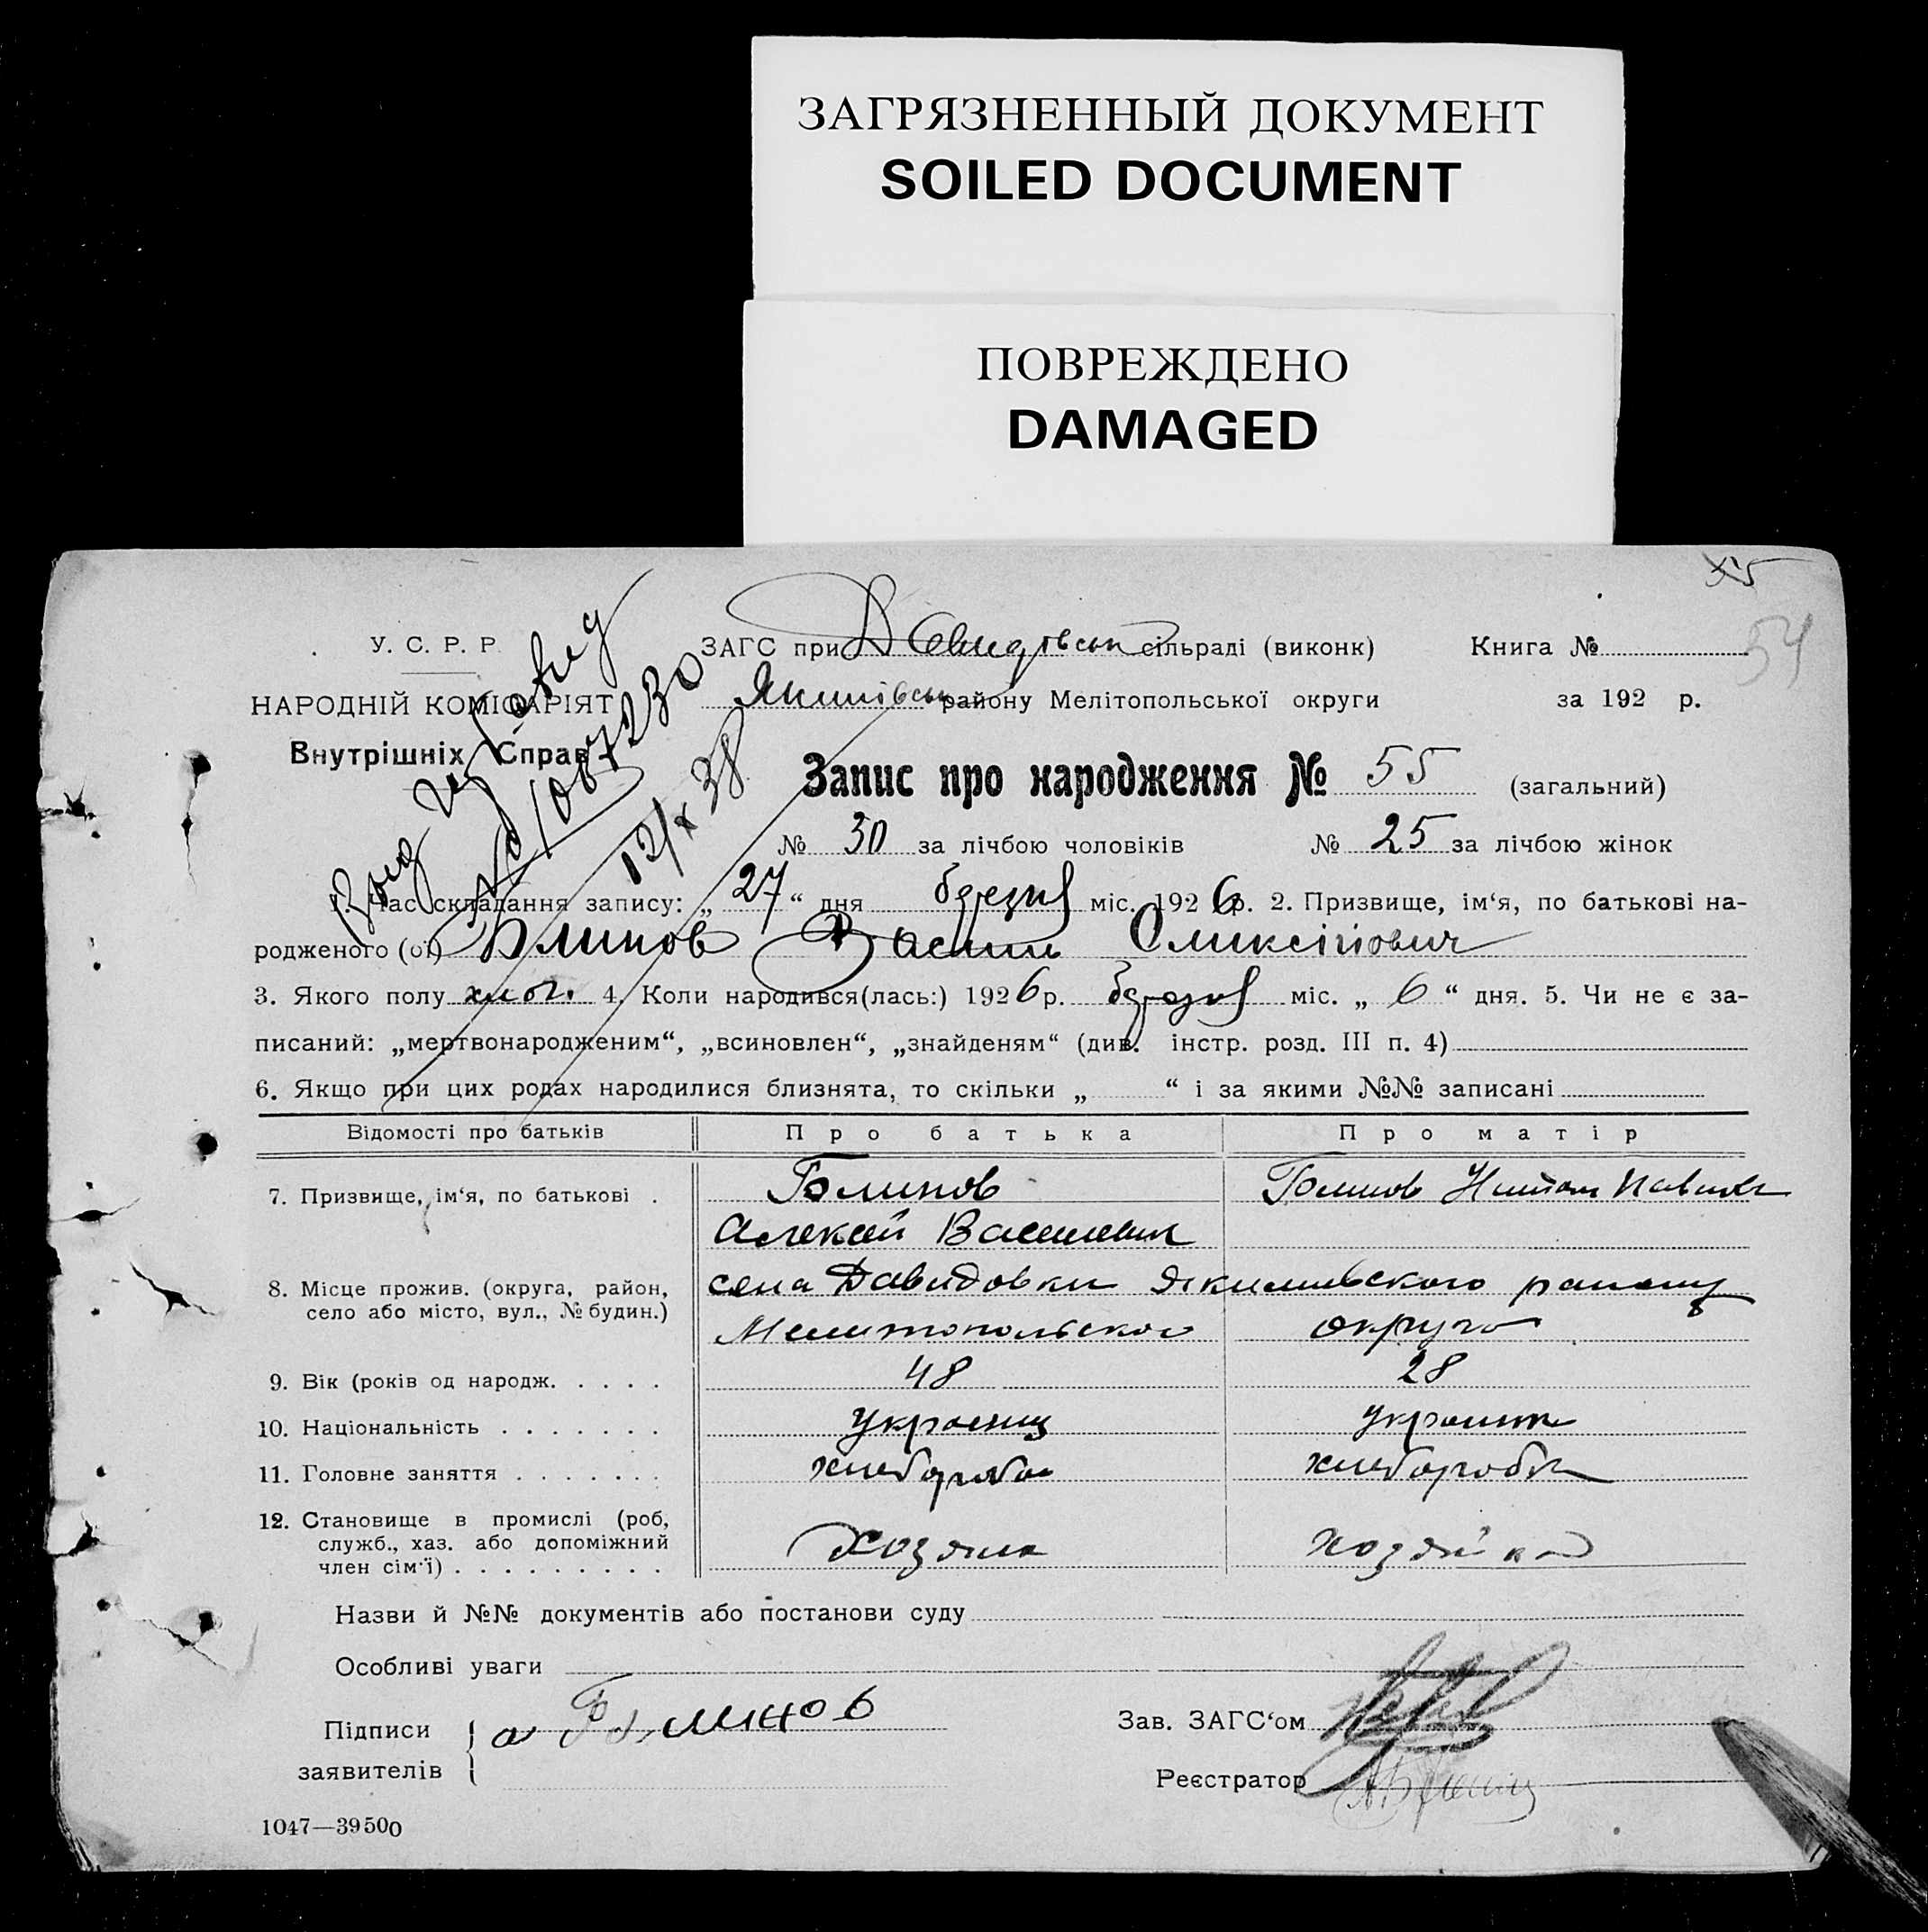 ЗАГРЯЗНЕННЫЙ ДОКУМЕНТ
SOILED DOCUMENT
ПОВРЕЖДЕНО
DAMAGED
54
У. С. Р. Р.
ЗАГС при сільраді (виконк)
Книга №
НАРОДНІЙ КОМІСАРІЯТ
Якимівськ району Мелітопольської округи
за 192 р.
Внутрішніх Справ
Запис про народження № 55 (загальний)
12/X 38
№ 30 за лічбою чоловіків № 25 за лічбою жінок
1. Час складання запису: „ 27 “ дня березня міс. 1926 р. 2. Призвище, ім‘я, по батькові на-
родженого (ої) Блинов Василь
3. Якого полу хлоп. 4. Коли народився(лась:) 1926 р. березня міс. „ 6 “ дня. 5. Чи не є за-
писаний: „мертвонародженим“, „всиновлен“, „знайденям“ (див. інстр. розд. III п. 4)
6. Якщо при цих родах народилися близнята, то скільки „ “ і за якими №№ записані
Відомості про батьків Про батька Про матір
7. Призвище, ім‘я, по батькові . Блинов Блинов
Алексей Васильевич
8. Місце прожив. (округа, район, село або місто, вул., № будин.) села Давидовки Якимовского району
Мелитопольской округа
9. Вік (років од народж. . . . . 48 28
10. Національність . . . . . . . украинц украинк
11. Головне заняття . . . . . . . хлебороб хлеборобк
12. Становище в промислі (роб,
служб., хаз. або допоміжний
член сім‘ї) . . . . . . . . . Хозяин хозяйка
Назви й №№ документів або постанови суду
Особливі уваги
Підписи
заявителів
а Блинов
Зав. ЗАГС‘ом
Реєстратор
1047—39500